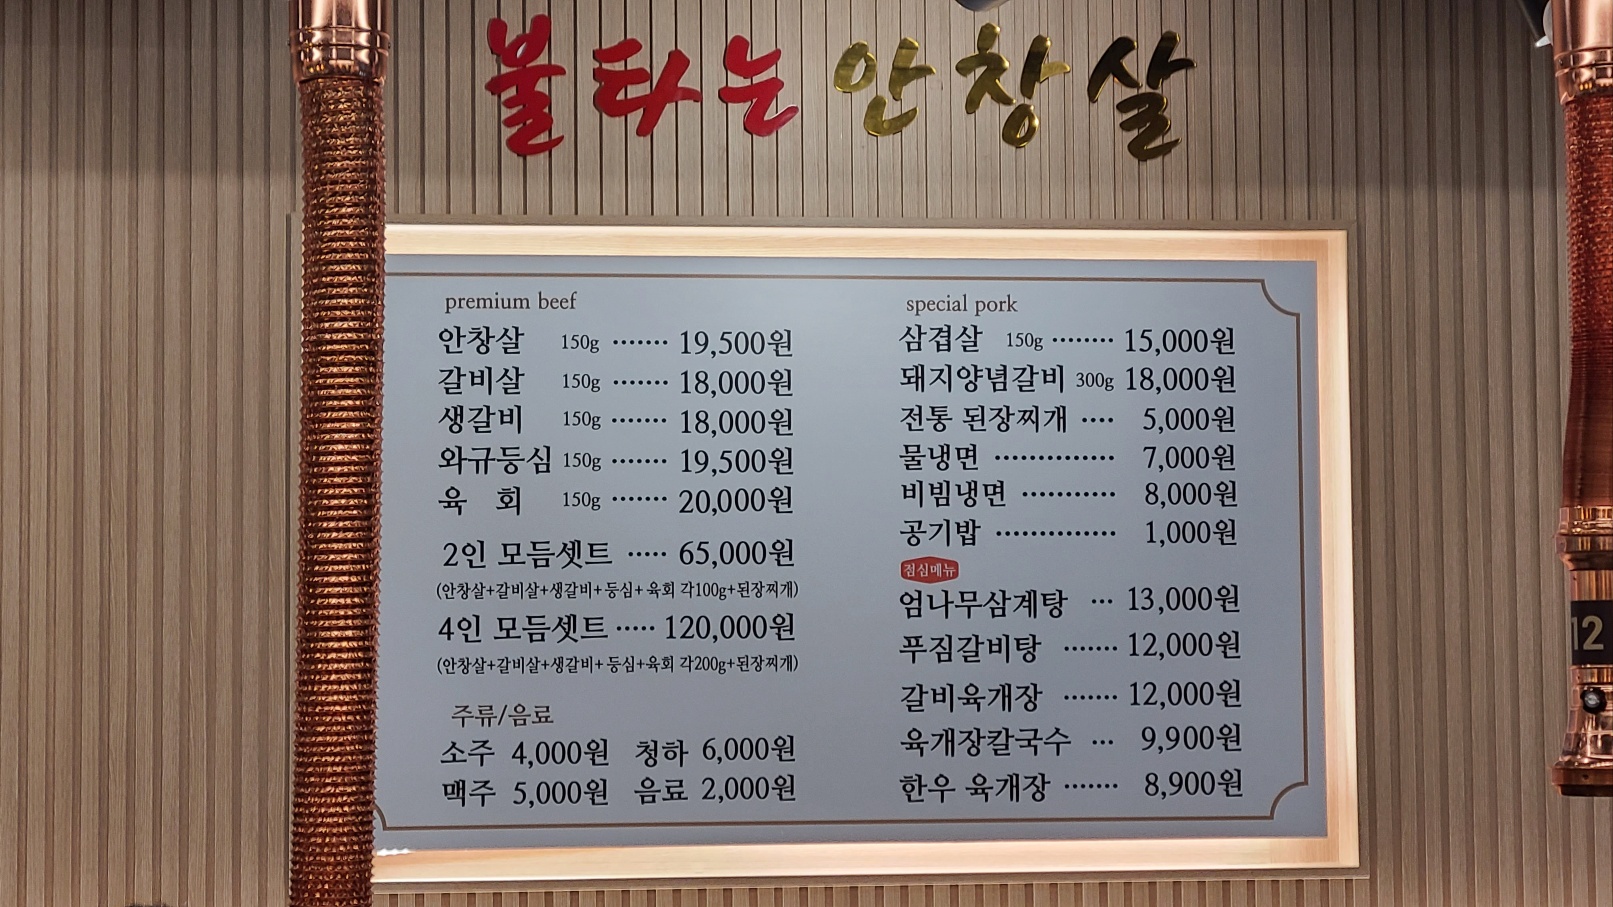 불타는 안창살
premium beef
안창살 150g ······· 19,500원
갈비살 150g ······· 18,000원
생갈비 150g ······· 18,000원
와규등심 150g ······· 19,500원
육 회 150g ······· 20,000원
2인 모듬셋트 ····· 65,000원
(안창살+갈비살+생갈비+등심+육회 각100g+된장찌개)
4인 모듬셋트 ····· 120,000원
(안창살+갈비살+생갈비+등심+육회 각200g+된장찌개)
주류/음료
소주 4,000원 청하 6,000원
맥주 5,000원 음료 2,000원
special pork
삼겹살 150g ········ 15,000원
돼지양념갈비 300g 18,000원
전통 된장찌개 ···· 5,000원
물냉면 ·············· 7,000원
비빔냉면 ··········· 8,000원
공기밥 ·············· 1,000원
점심메뉴
엄나무삼계탕 ··· 13,000원
푸짐갈비탕 ······· 12,000원
갈비육개장 ······· 12,000원
육개장칼국수 ··· 9,900원
한우 육개장 ······· 8,900원
12